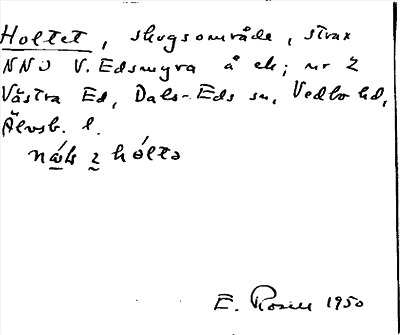 Holtet, skogsområde, strax
NNO V. Edsmyra å ek; nr 2
Västra Ed, Dals-Eds sn, Vedbo hd,
Älvsb. l.
E. Rosell 1950